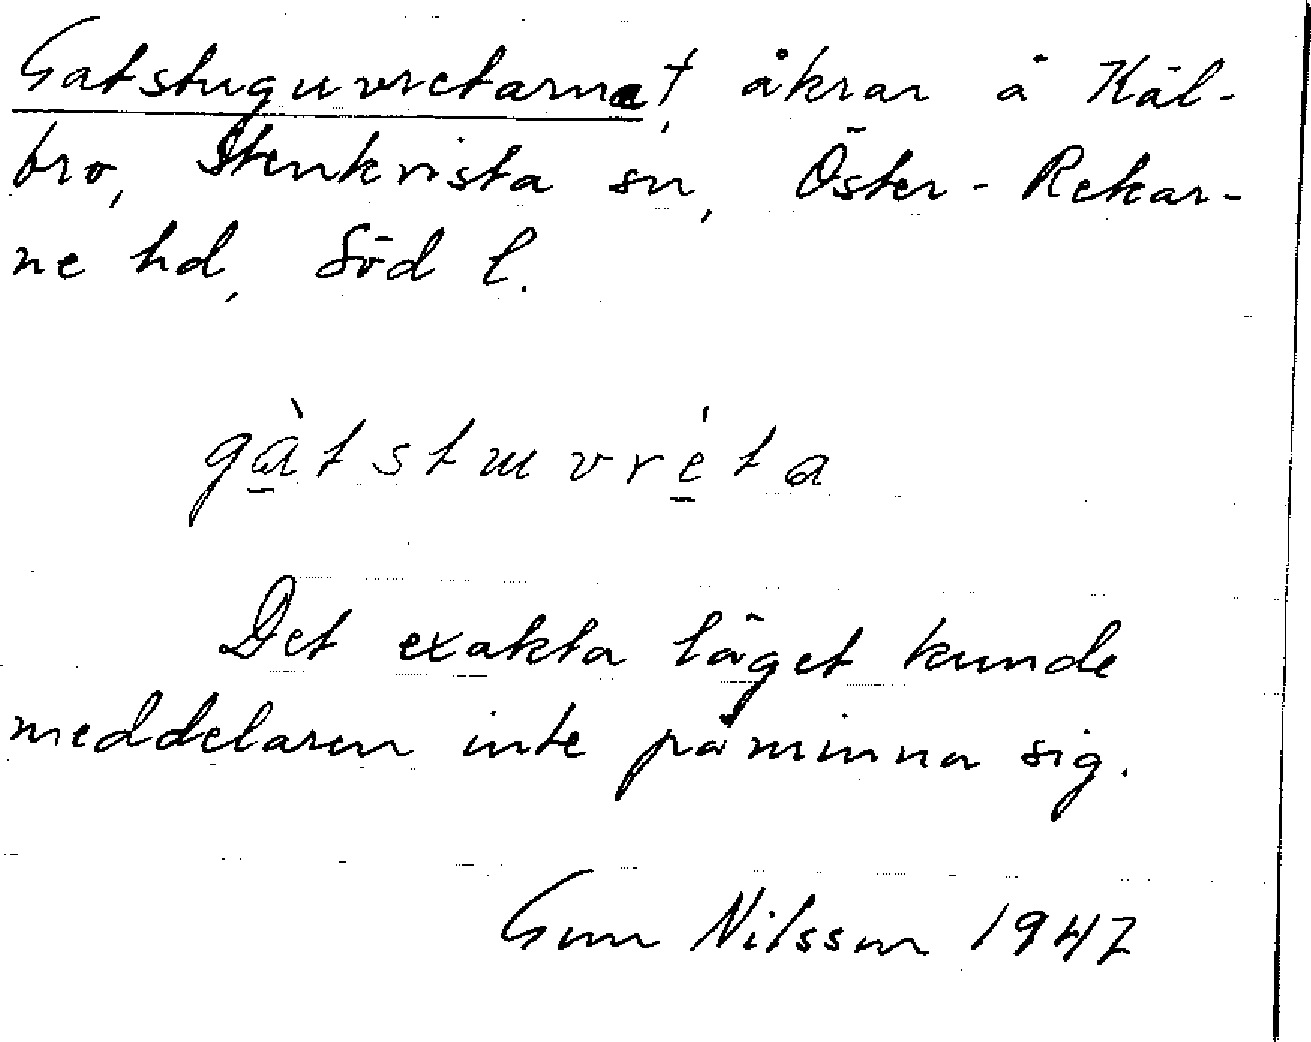 Gatstuguvretarna†, åkrar å Käl-
bro, Stenkvista sn, Öster-Rekar-
ne hd, Söd l.
gàtstuvréta
Det exakta läget kunde
meddelaren inte påminna sig.
Gun Nilsson 1947